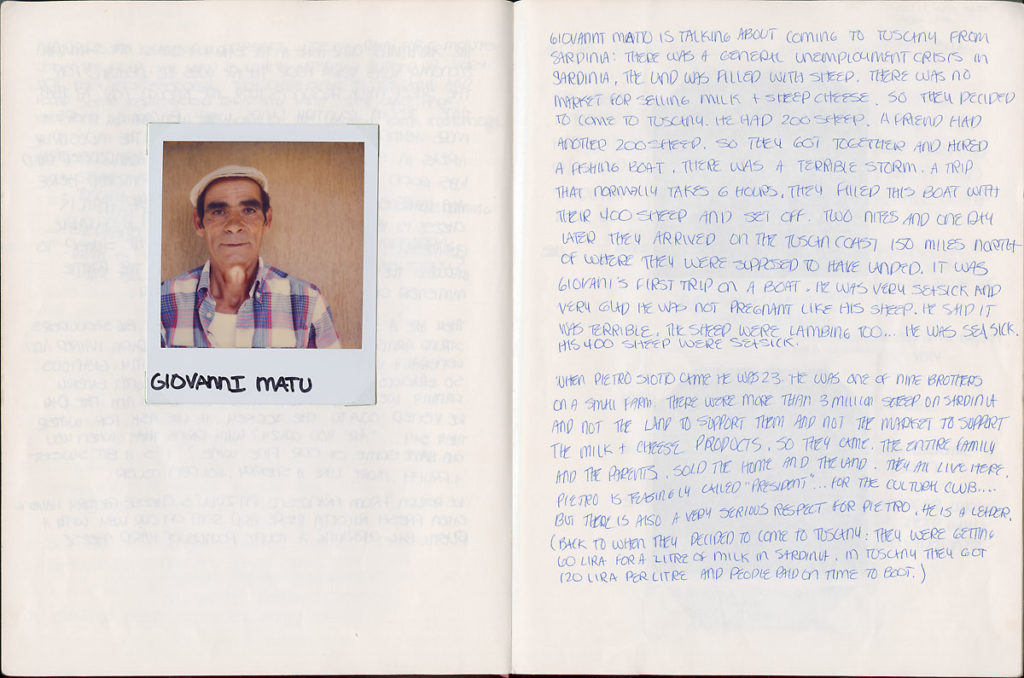 GIOVANNI MATU
GIOVANNI MATU IS TALKING ABOUT COMING TO TUSCANY FROM
SARDINIA: THERE WAS A GENERAL UNEMPLOYMENT CRISIS IN
SARDINIA, THE LAND WAS FILLED WITH SHEEP. THERE WAS NO
MARKET FOR SELLING MILK + SHEEP CHEESE. SO THEY DECIDED
TO COME TO TUSCANY. HE HAD 200 SHEEP. A FRIEND HAD
ANOTHER 200 SHEEP. SO THEY GOT TOGETHER AND HIRED
A FISHING BOAT. THERE WAS A TERRIBLE STORM. A TRIP
THAT NORMALLY TAKES 6 HOURS. THEY FILLED THIS BOAT WITH
THEIR 400 SHEEP AND SET OFF. TWO NITES AND ONE DAY
LATER THEY ARRIVED ON THE TUSCAN COAST 150 MILES NORTH
OF WHERE THEY WERE SUPPOSED TO HAVE LANDED. IT WAS
GIOVANI'S FIRST TRIP ON A BOAT. HE WAS VERY SEASICK AND
VERY GLAD HE WAS NOT PREGNANT LIKE HIS SHEEP. HE SAID IT
WAS TERRIBLE. THE SHEEP WERE LAMBING TOO... HE WAS SEASICK.
HIS 400 SHEEP WERE SEASICK.
WHEN PIETRO SIOTTO CAME HE WAS 23. HE WAS ONE OF NINE BROTHERS
ON A SMALL FARM. THERE WERE MORE THAN 3 MILLION SHEEP ON SARDINIA
AND NOT THE LAND TO SUPPORT THEM AND NOT THE MARKET TO SUPPORT
THE MILK + CHEESE PRODUCTS. SO THEY CAME. THE ENTIRE FAMILY
AND THE PARENTS. SOLD THE HOME AND THE LAND. THEY ALL LIVE HERE.
PIETRO IS TEASINGLY CALLED "PRESIDENT"... FOR THE CULTURAL CLUB....
BUT THERE IS ALSO A VERY SERIOUS RESPECT FOR PIETRO. HE IS A LEADER.
(BACK TO WHEN THEY DECIDED TO COME TO TUSCANY: THEY WERE GETTING
60 LIRA FOR A LITRE OF MILK IN SARDINIA. IN TUSCANY THEY GOT
120 LIRA PER LITRE AND PEOPLE PAID ON TIME TO BOOT.)